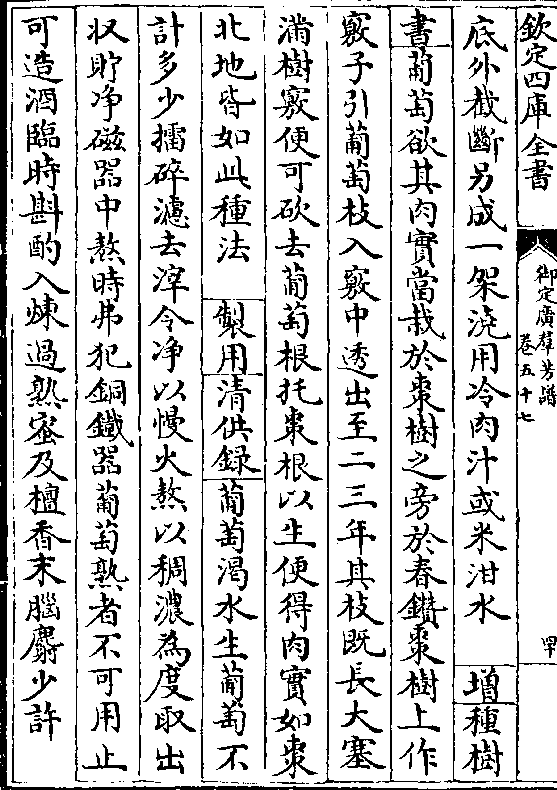 欽定四庫全書
御定廣羣芳譜
卷五十七
底外截斷另成一架澆用冷肉汁或米泔水　增種樹
書葡萄欲其肉實當栽於棗樹之旁於春鑽棗樹上作
竅子引葡萄枝入竅中透出至二三年其枝既長大塞
滿樹竅便可砍去葡萄根托棗根以生便得肉實如棗
北地皆如此種法　製用清供録葡萄渴水生葡萄不
計多少擂碎濾去滓令净以慢火熬以稠濃為度取出
収貯净磁器中熬時弗犯銅鐵器葡萄熟者不可用止
可造酒臨時斟酌入煉過熟蜜及檀香末腦麝少許